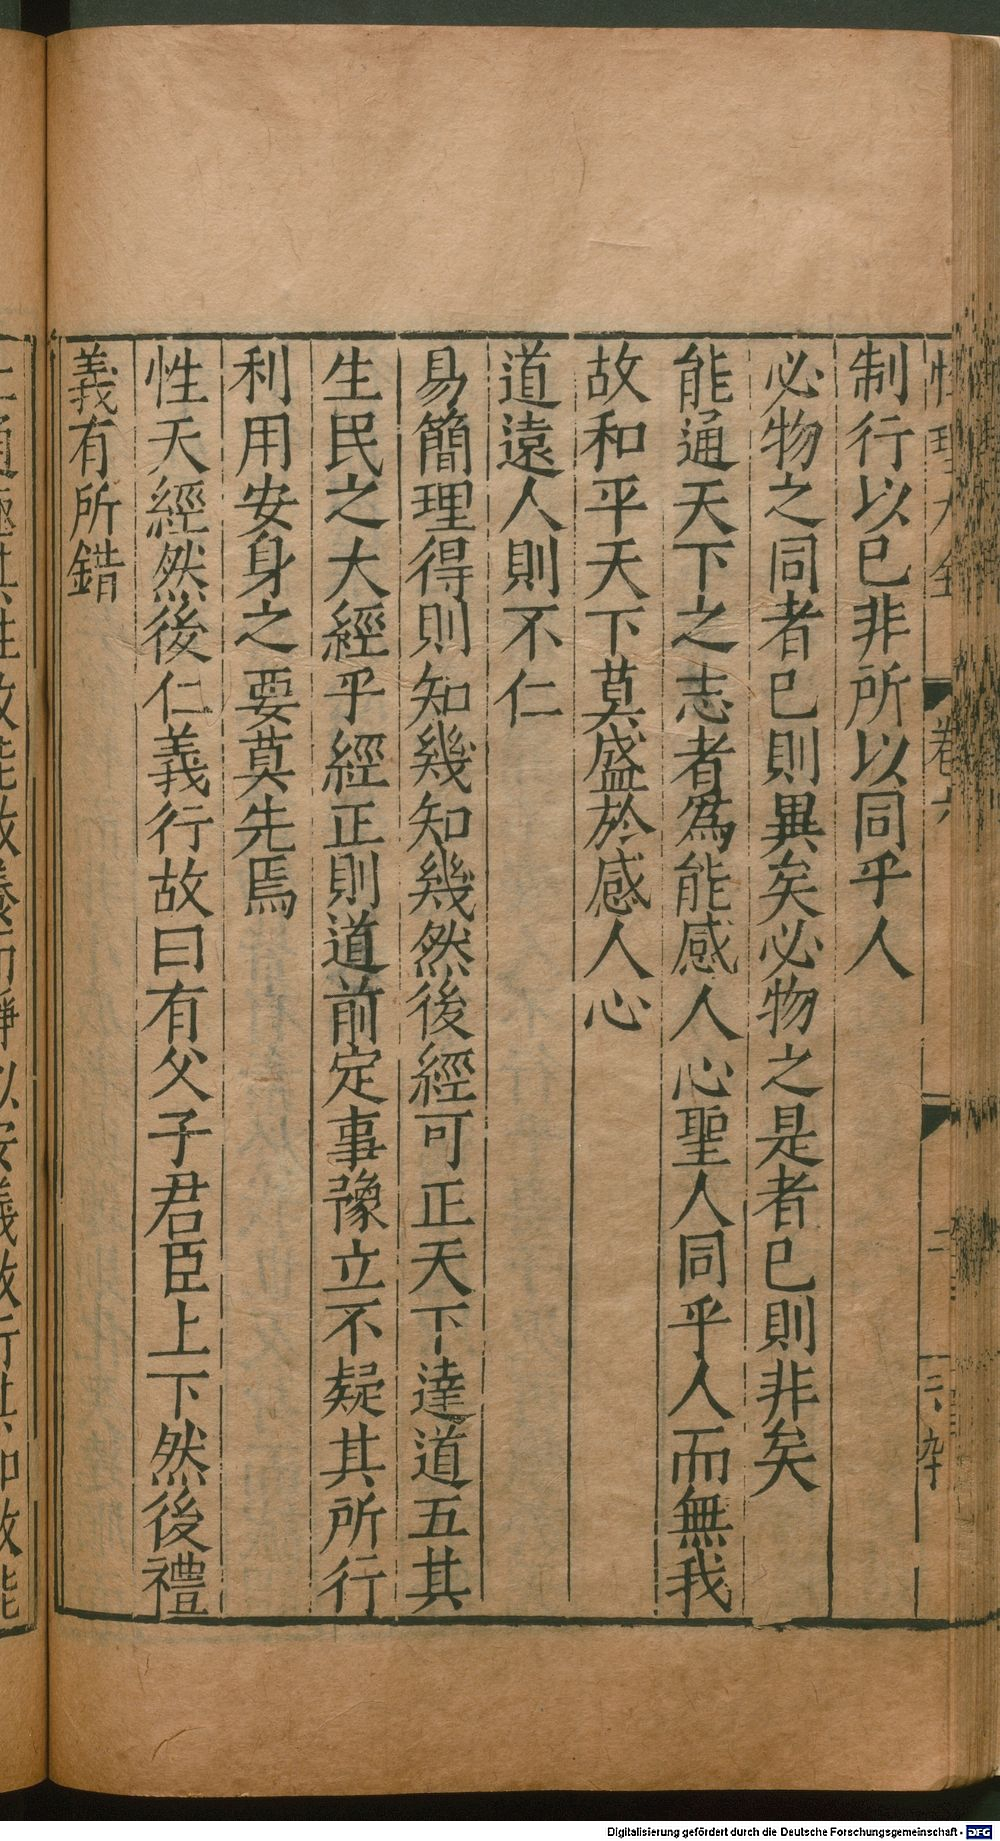 性理大全 卷六 二
制行以已非所以同乎人
必物之同者已則異矣必物之是者已則非矣
能通天下之志者爲能感人心聖人同乎人而無我
故和平天下莫盛於感人心
道遠人則不仁
易簡理得則知幾知幾然後經可正天下達道五其
生民之大經乎經正則道前定事豫立不疑其所行
利用安身之要莫先焉
性天經然後仁義行故曰有父子君臣上下然後禮
義有所錯
Digitalisierung gefördert durch die Deutsche Forschungsgemeinschaft - DFG